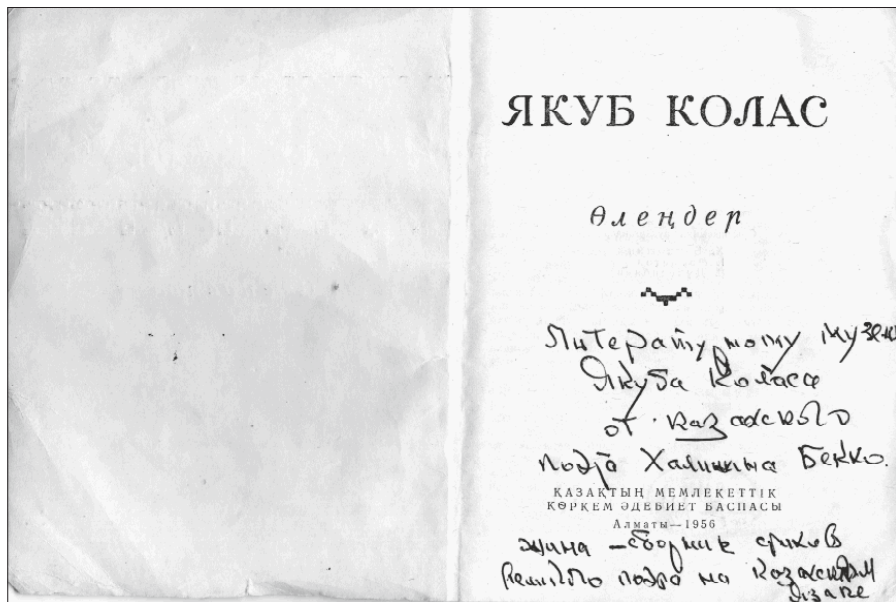 ЯКУБ КОЛАС
Өлеңдер
Литературному музею
Якуба Коласа
от казахского
поэта Халижана Бекхо
ҚАЗАҚТЫҢ МЕМЛЕКЕТТІК
КӨРКЕМ ӘДЕБИЕТ БАСПАСЫ
Алматы—1956
— сборник стихов
поэта на Казахском
языке